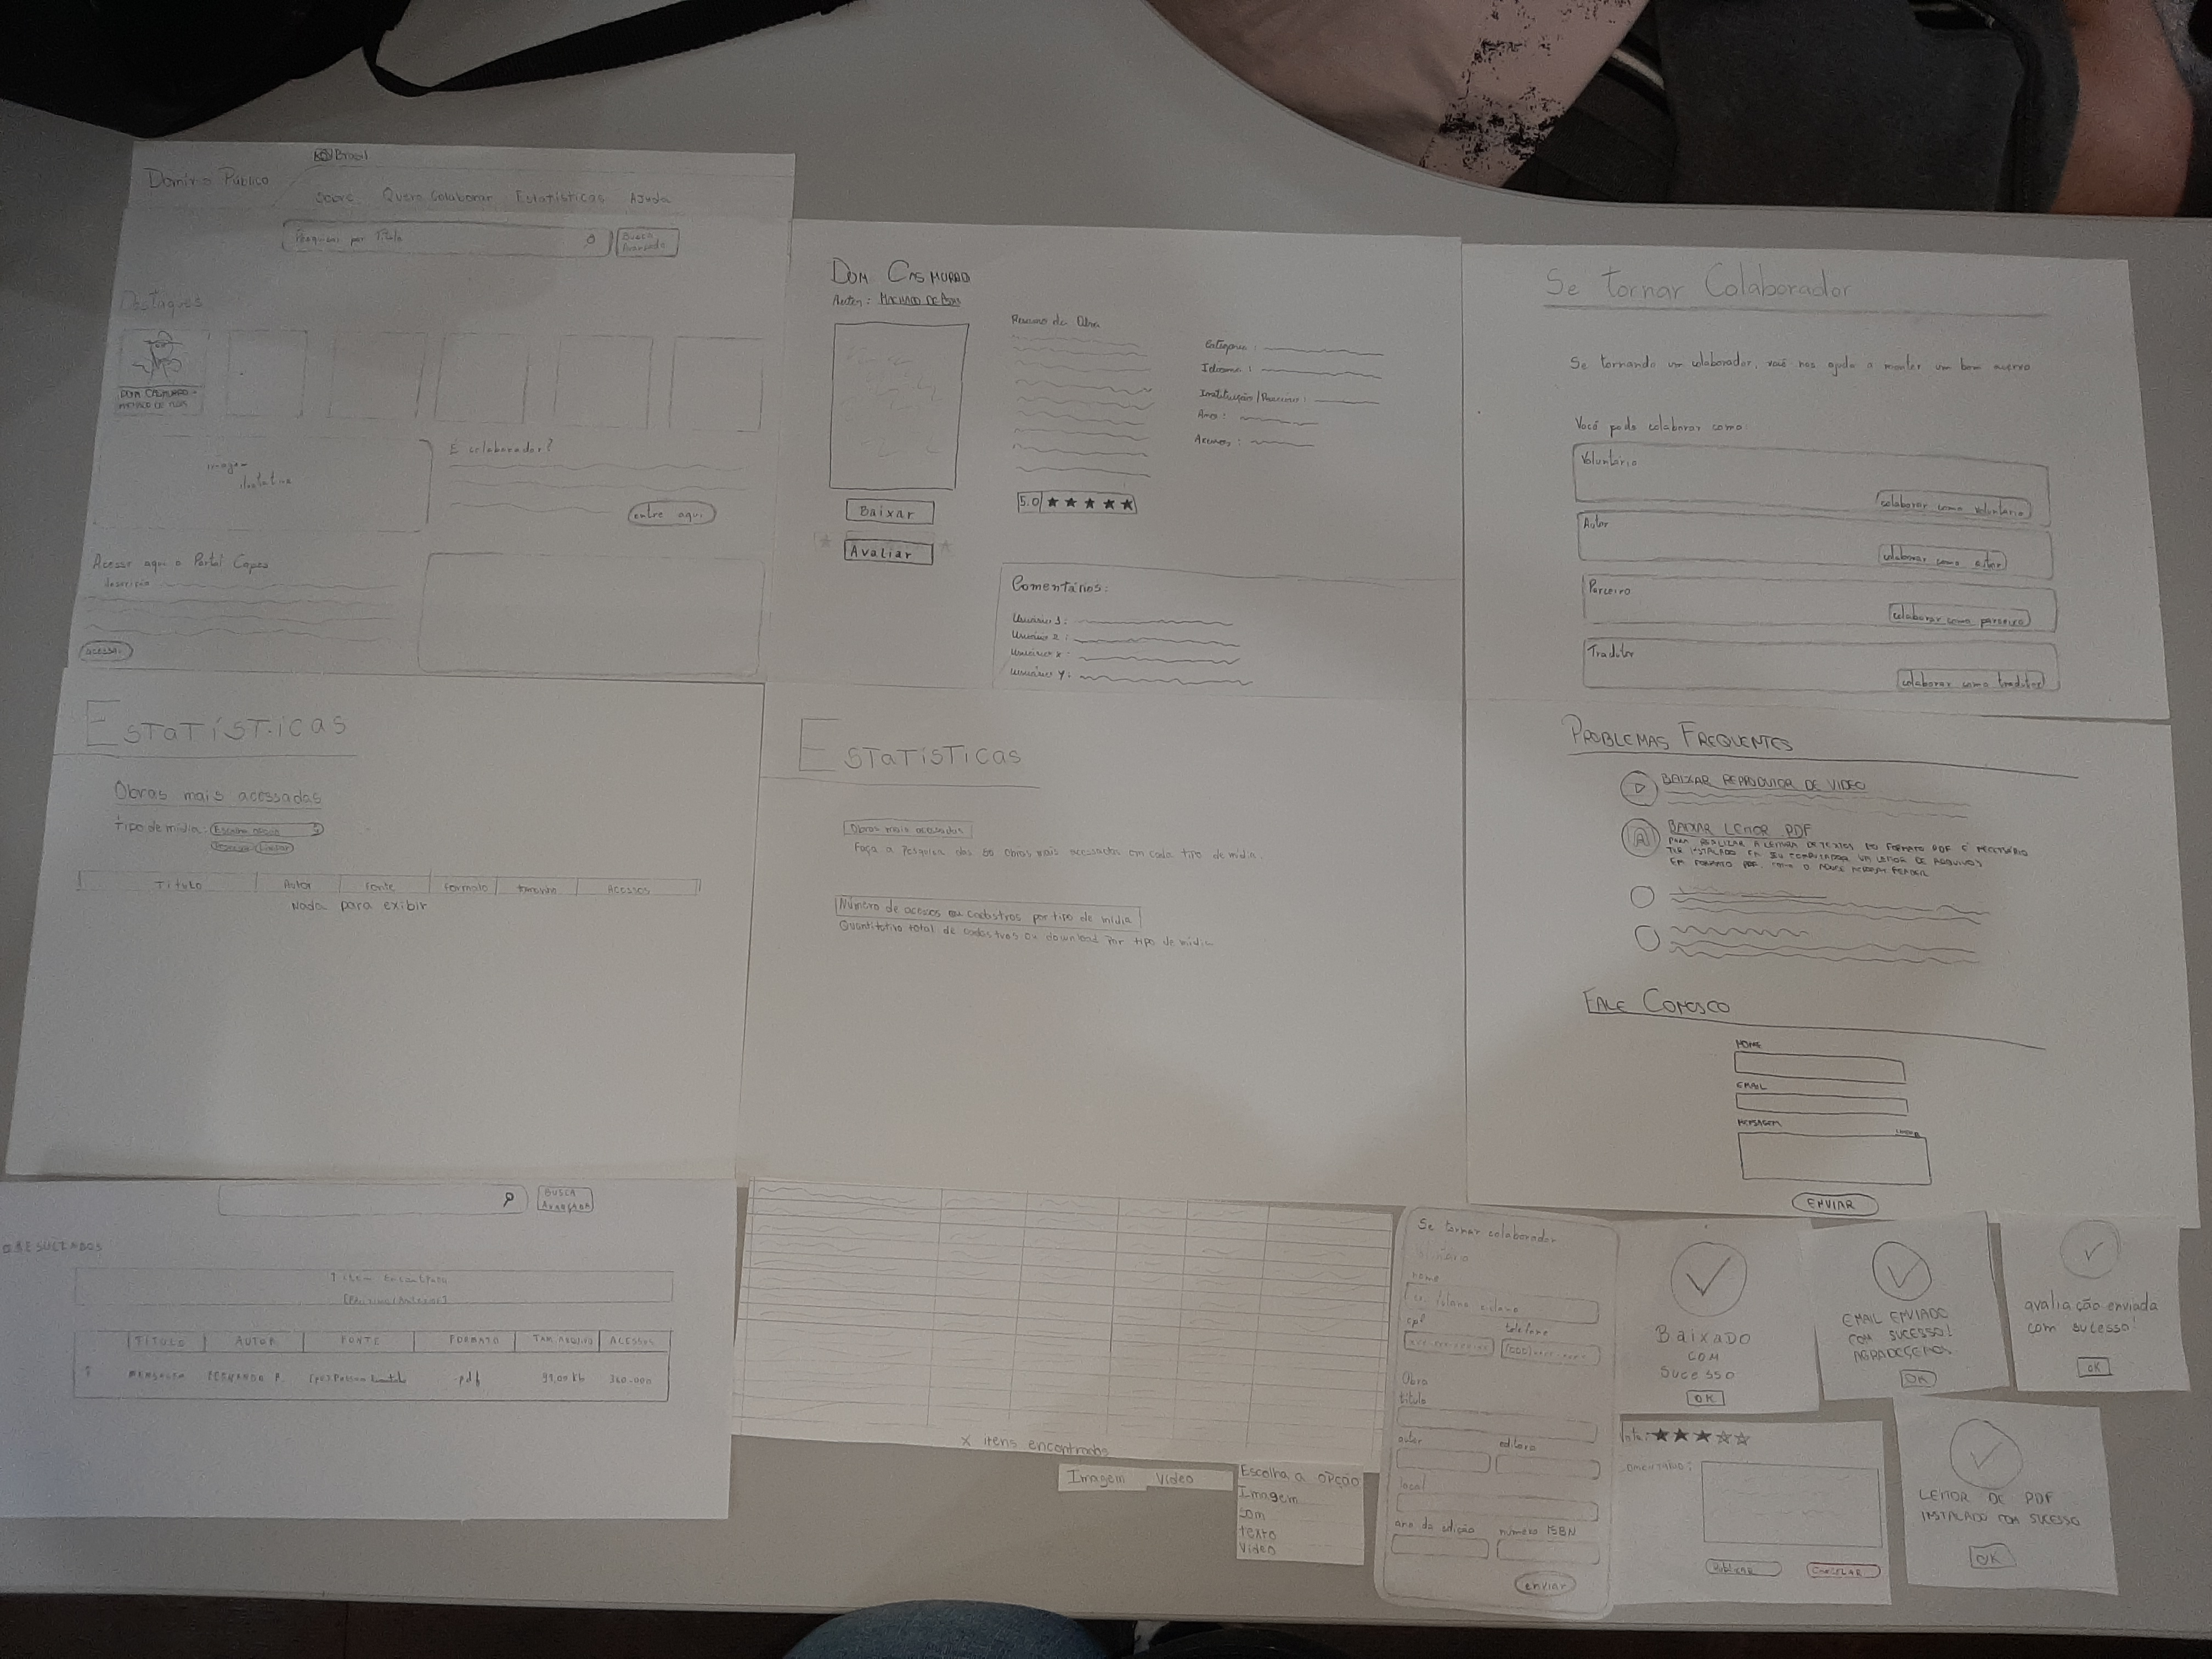 Brasil
Domínio Público
Sobre Quero Colaborar Estatísticas Ajuda
Pesquisar por Título
Busca
Avançada
Destaques
DOM CASMURRO -
MACHADO DE ASSIS
imagem
ilustrativa
É colaborador?
entre aqui
Acesse aqui o Portal Capes
descrição
acessar
DOM CASMURRO
Autor: MACHADO DE ASSIS
Resumo da Obra
Categoria:
Idioma:
Instituição/Parceiro:
Ano:
Acessos:
5.0 ★ ★ ★ ★ ★
Baixar
Avaliar
Comentários:
Usuário 1:
Usuário 2:
Usuário x:
Usuário y:
Se tornar Colaborador
Se tornando um colaborador, você nos ajuda a manter um bom acervo
Você pode colaborar como:
Voluntário
colaborar como voluntário
Autor
colaborar como autor
Parceiro
colaborar como parceiro
Tradutor
colaborar como tradutor
ESTATíSTiCas
Obras mais acessadas
Tipo de mídia: Escolha opção
Pesquisar Limpar
Título Autor Fonte Formato tamanho Acessos
Nada para exibir
ESTATíSTICas
Obras mais acessadas
Faça a Pesquisa das 50 obras mais acessadas em cada tipo de mídia.
Número de acessos ou cadastros por tipo de mídia
Quantitativo total de cadastros ou download por tipo de mídia
PROBLEMAS FREQUENTES
BAIXAR REPRODUTOR DE VIDEO
BAIXAR LEITOR PDF
PARA REALIZAR A LEITURA DE TEXTOS NO FORMATO PDF É NECESSÁRIO
TER INSTALADO EM SEU COMPUTADOR UM LEITOR DE ARQUIVOS
EM FORMATO PDF, COMO O ADOBE ACROBAT READER
FALE CONOSCO
NOME
EMAIL
MENSAGEM
ENVIAR
BUSCA
AVANÇADA
RESULTADOS
1 item encontrado
[PRÓXIMO/ANTERIOR]
TÍTULO AUTOR FONTE FORMATO TAM. ARQUIVO ACESSOS
MENSAGEM FERNANDO P. .pdf
x itens encontrados
Imagem Vídeo
Escolha a OPÇÃO
Imagem
som
texto
Vídeo
Se tornar colaborador
nome
ex. fulano ciclano
cpf telefone
Obra
título
autor editora
local
ano da edição número ISBN
enviar
BaixaDO
COM
Sucesso
OK
EMAIL ENVIADO
COM SUCESSO!
AGRADECEMOS
OK
avaliação enviada
com sucesso!
OK
Nota: ★★★☆☆
comentário:
Publicar CANCELAR
LEITOR DE PDF
INSTALADO COM SUCESSO
OK